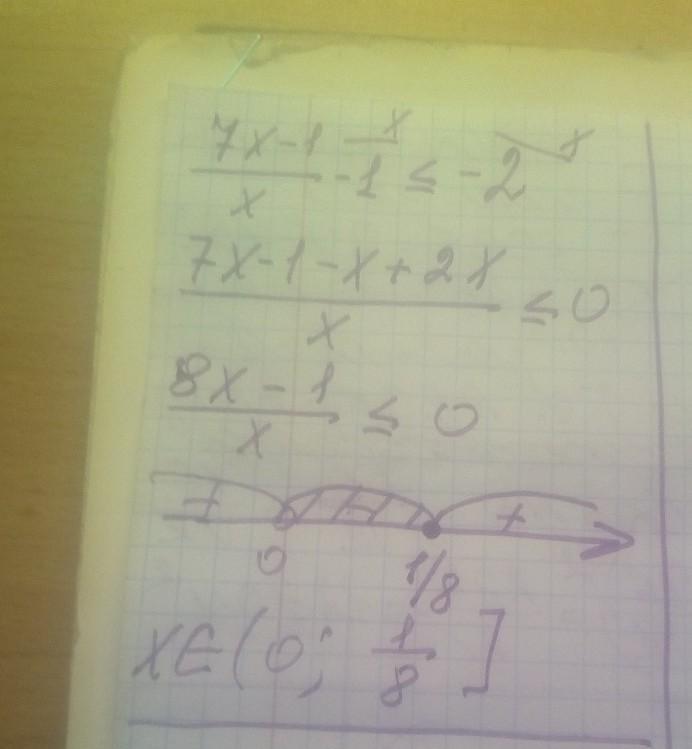 (7x-1)/x - 1 ≤ -2
(7x-1-x+2x)/x ≤ 0
(8x-1)/x ≤ 0
+ - +
0 1/8
x∈(0; 1/8]